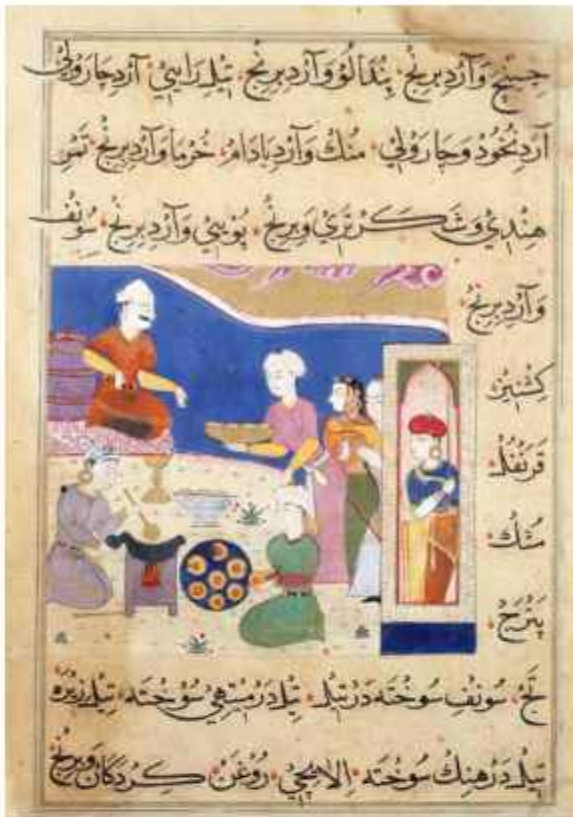 وآرد برنج٠ پندالو وآرد برنج٠ تیل رایی٠ آرد چارولی
آرد نخود وچارولی٠ منك وآرد بادام٠ خرما وآرد برنج٠ تمر
هندی وشکر تری وبرنج٠ بویی وآرد برنج٠ سونف
وآرد برنج٠
کشنیز
قرنفل٠
مشك
پترج٠
تج٠ سونف سوخته در تیل٠ تیل در میتهی سوخته٠ تیل زیره
تیل در هنك سوخته٠ الایچی٠ روغن کردکان وبرنج